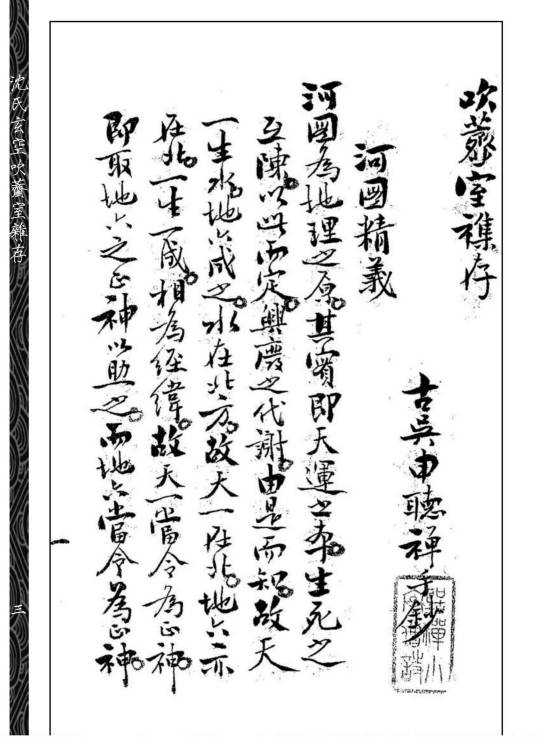 吹虀室襍存
古吳申聽禪手鈔
河圖精義
河圖為地理之原。其實即天運之本。生死之
互陳。以此而定。興廢之代謝。由是而知。故天
一生水。地六成之。水在北方。故天一在北。地六亦
在北。一生一成。相為經緯。故天一當令為正神。
即取地六之正神以助之。而地六當令為正神。
一
沈氏玄空吹虀室雜存
三